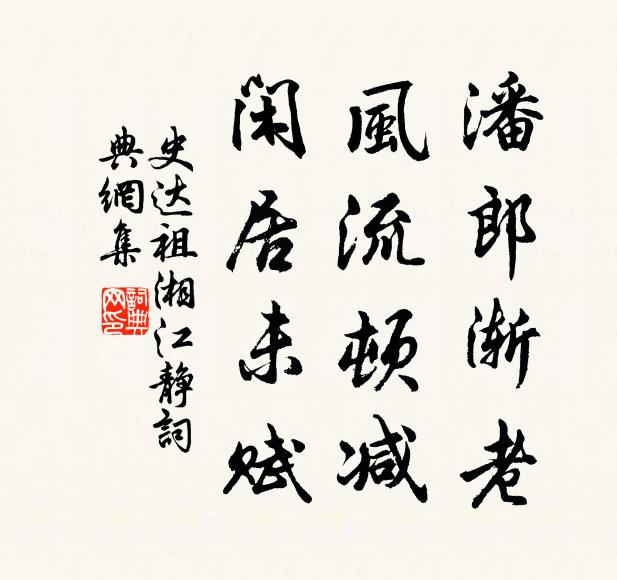 潘郎渐老
風流頓减
閑居未赋
史达祖湘江静詞
典網集
詞典
网印